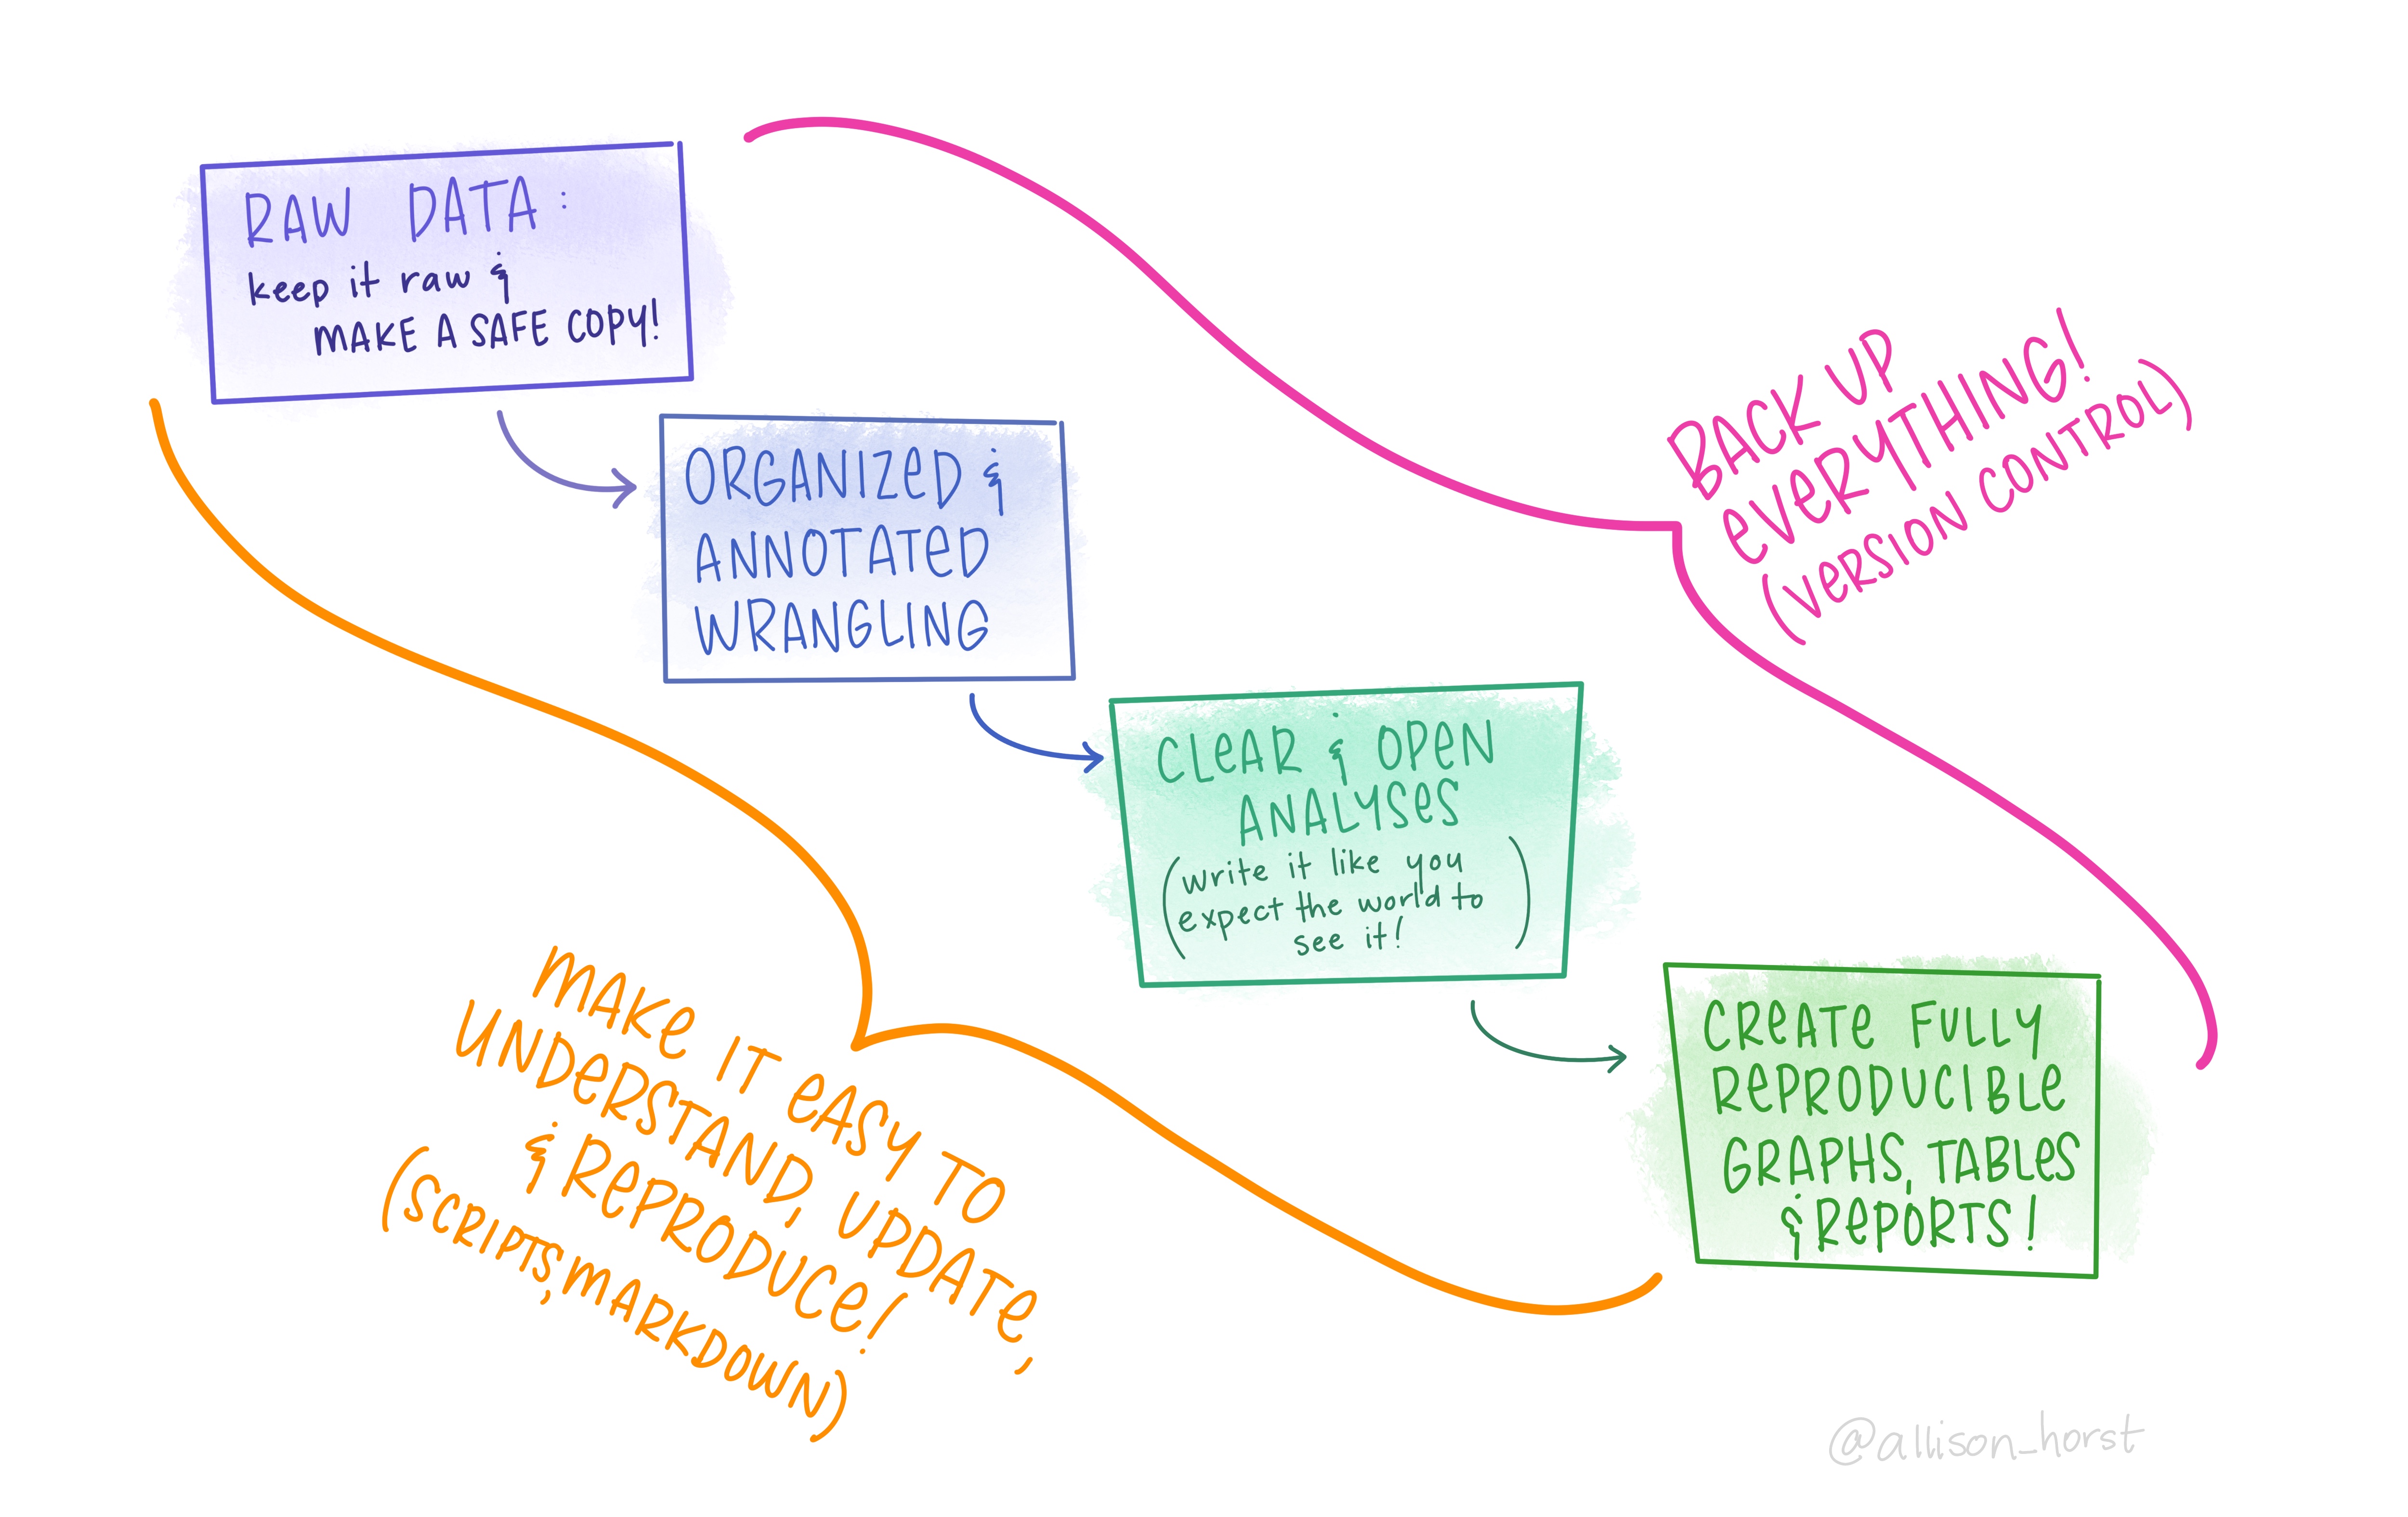 RAW DATA:
keep it raw &
MAKE A SAFE COPY!
ORGANIZED &
ANNOTATED
WRANGLING
CLEAR & OPEN
ANALYSES
(write it like you
expect the world to
see it!)
CREATE FULLY
REPRODUCIBLE
GRAPHS, TABLES
& REPORTS!
BACK UP
EVERYTHING!
(VERSION CONTROL)
MAKE IT EASY TO
UNDERSTAND, UPDATE,
& REPRODUCE!
(SCRIPTS, MARKDOWN)
@allison_horst